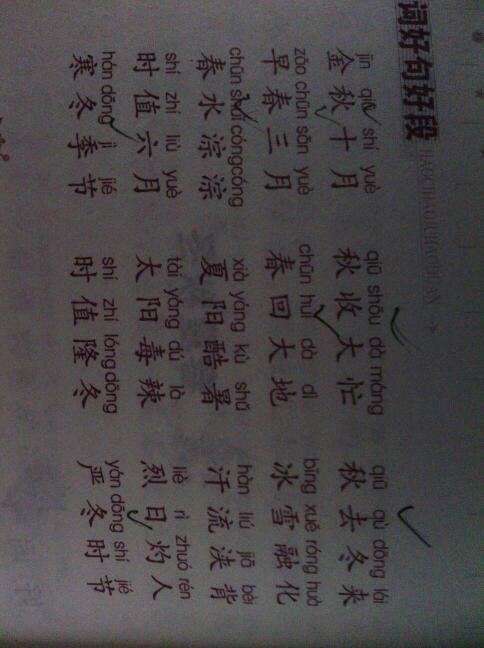 词好句好段
HAOCIHAOJUHAODUAN
jīn qiū shí yuè qiū shōu dà máng qiū qù dōng lái
金秋十月 秋收大忙 秋去冬来
zǎo chūn sān yuè chūn huí dà dì bīng xuě róng huà
早春三月 春回大地 冰雪融化
chūn shuǐ cóngcóng xià yáng kù shǔ hàn liú jiā bèi
春水淙淙 夏阳酷暑 汗流浃背
shí zhí liù yuè tài yáng dú là liè rì zhuó rén
时值六月 太阳毒辣 烈日灼人
hán dōng jì jié shí zhí lóngdōng yán dōng shí jié
寒冬季节 时值隆冬 严冬时节